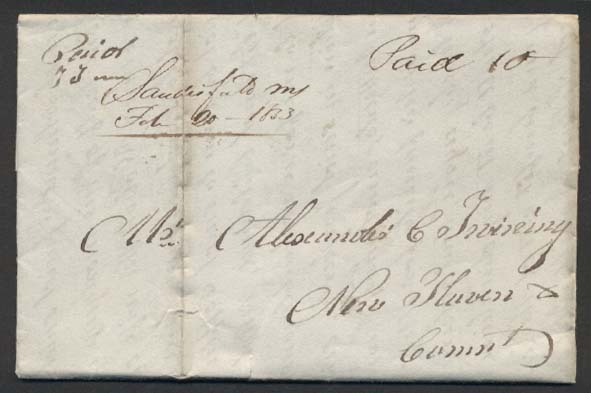 Paid 10
Sandisfield Ms
Feb 20 - 1833
Mr. Alexander C Twining
New Haven
Connt